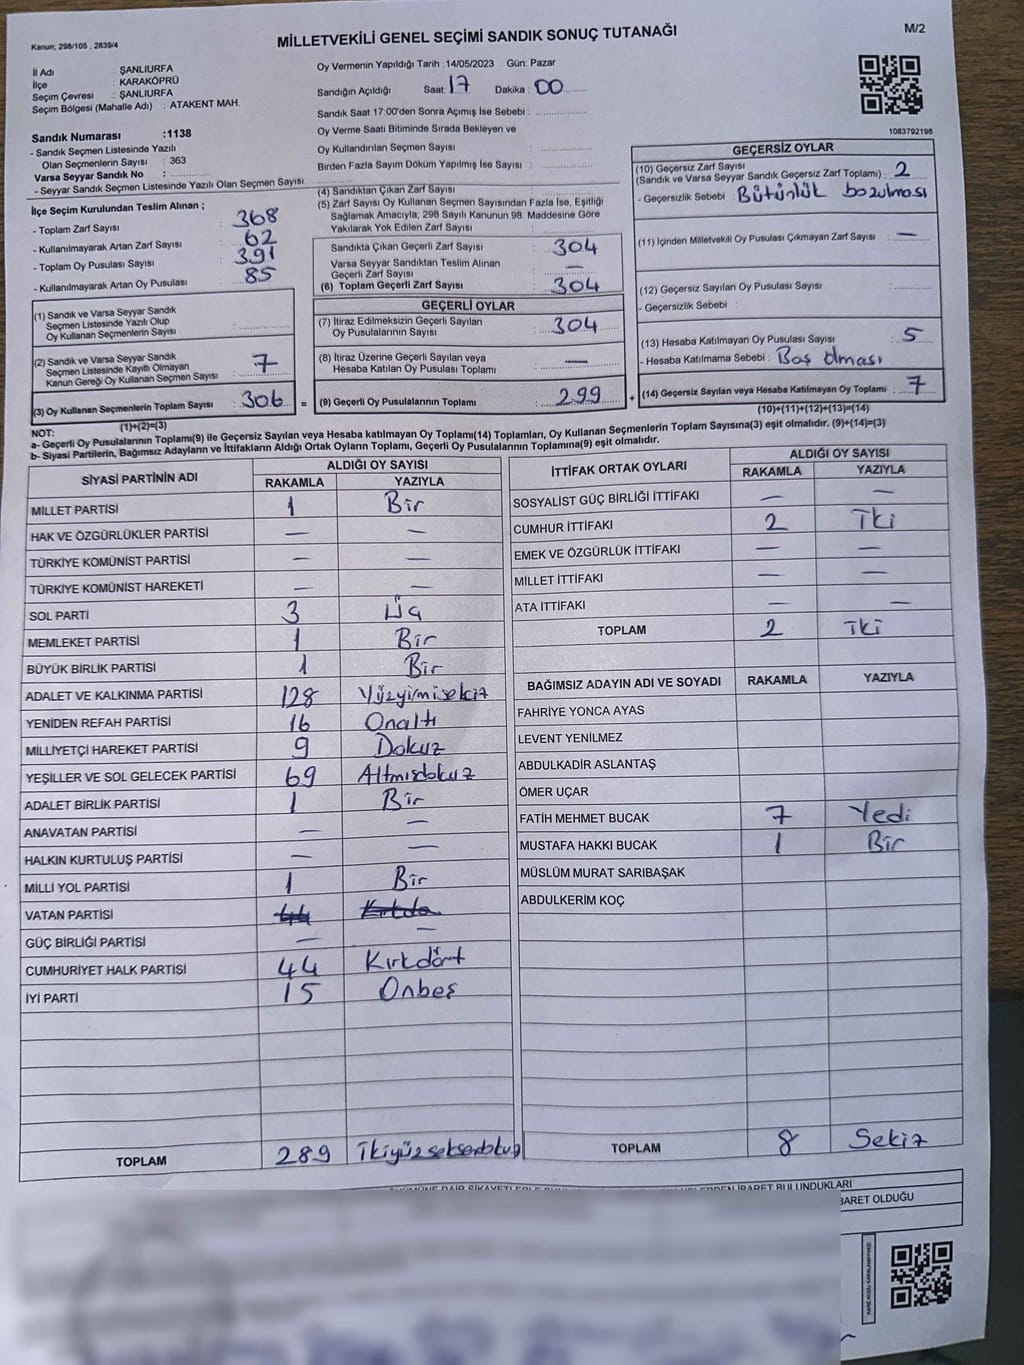 Kanun; 298/105 , 2839/4
MİLLETVEKİLİ GENEL SEÇİMİ SANDIK SONUÇ TUTANAĞI
M/2
İl Adı : ŞANLIURFA
İlçe : KARAKÖPRÜ
Seçim Çevresi : ŞANLIURFA
Seçim Bölgesi (Mahalle Adı) : ATAKENT MAH.
Sandık Numarası :1138
- Sandık Seçmen Listesinde Yazılı
Olan Seçmenlerin Sayısı : 363
Varsa Seyyar Sandık No :
- Seyyar Sandık Seçmen Listesinde Yazılı Olan Seçmen Sayısı:
Oy Vermenin Yapıldığı Tarih :14/05/2023 Gün: Pazar
Sandığın Açıldığı Saat: 17 Dakika : 00
Sandık Saat 17:00'den Sonra Açımış İse Sebebi :
Oy Verme Saati Bitiminde Sırada Bekleyen ve
Oy Kullandırılan Seçmen Sayısı :
Birden Fazla Sayım Döküm Yapılmış İse Sayısı :
1083792198
İlçe Seçim Kurulundan Teslim Alınan ;
- Toplam Zarf Sayısı : 368
- Kullanılmayarak Artan Zarf Sayısı : 62
- Toplam Oy Pusulası Sayısı : 391
- Kullanılmayarak Artan Oy Pusulası : 85
(1) Sandık ve Varsa Seyyar Sandık
Seçmen Listesinde Yazılı Olup
Oy Kullanan Seçmenlerin Sayısı :
(2) Sandık ve Varsa Seyyar Sandık
Seçmen Listesinde Kayıtlı Olmayan
Kanun Gereği Oy Kullanan Seçmen Sayısı : 7
(3) Oy Kullanan Seçmenlerin Toplam Sayısı : 306 =
(1)+(2)=(3)
(4) Sandıktan Çıkan Zarf Sayısı :
(5) Zarf Sayısı Oy Kullanan Seçmen Sayısından Fazla İse, Eşitliği
Sağlamak Amacıyla, 298 Sayılı Kanunun 98. Maddesine Göre
Yakılarak Yok Edilen Zarf Sayısı :
Sandıkta Çıkan Geçerli Zarf Sayısı : 304
Varsa Seyyar Sandıktan Teslim Alınan
Geçerli Zarf Sayısı : —
(6) Toplam Geçerli Zarf Sayısı : 304
GEÇERLİ OYLAR
(7) İtiraz Edilmeksizin Geçerli Sayılan
Oy Pusulalarının Sayısı : 304
(8) İtiraz Üzerine Geçerli Sayılan veya
Hesaba Katılan Oy Pusulası Toplamı : —
(9) Geçerli Oy Pusulalarının Toplamı : 299 +
GEÇERSİZ OYLAR
(10) Geçersiz Zarf Sayısı
(Sandık ve Varsa Seyyar Sandık Geçersiz Zarf Toplamı) : 2
- Geçersizlik Sebebi : Bütünlük bozulması
(11) İçinden Milletvekili Oy Pusulası Çıkmayan Zarf Sayısı : —
(12) Geçersiz Sayılan Oy Pusulası Sayısı :
- Geçersizlik Sebebi :
(13) Hesaba Katılmayan Oy Pusulası Sayısı : 5
- Hesaba Katılmama Sebebi : Boş olması
(14) Geçersiz Sayılan veya Hesaba Katılmayan Oy Toplamı : 7
(10)+(11)+(12)+(13)=(14)
NOT:
a- Geçerli Oy Pusulalarının Toplamı(9) ile Geçersiz Sayılan veya Hesap katılmayan Oy Toplamı(14) Toplamları, Oy Kullanan Seçmenlerin Toplam Sayısına(3) eşit olmalıdır. (9)+(14)=(3)
b- Siyasi Partilerin, Bağımsız Adayların ve İttifakların Aldığı Ortak Oyların Toplamı, Geçerli Oy Pusulalarının Toplamına(9) eşit olmalıdır.
SİYASİ PARTİNİN ADI ALDIĞI OY SAYISI
RAKAMLA YAZIYLA
MİLLET PARTİSİ 1 Bir
HAK VE ÖZGÜRLÜKLER PARTİSİ — —
TÜRKİYE KOMÜNİST PARTİSİ — —
TÜRKİYE KOMÜNİST HAREKETİ — —
SOL PARTİ 3 Üç
MEMLEKET PARTİSİ 1 Bir
BÜYÜK BİRLİK PARTİSİ 1 Bir
ADALET VE KALKINMA PARTİSİ 128 Yüzyirmisekiz
YENİDEN REFAH PARTİSİ 16 Onaltı
MİLLİYETÇİ HAREKET PARTİSİ 9 Dokuz
YEŞİLLER VE SOL GELECEK PARTİSİ 69 Altmışdokuz
ADALET BİRLİK PARTİSİ 1 Bir
ANAVATAN PARTİSİ — —
HALKIN KURTULUŞ PARTİSİ — —
MİLLİ YOL PARTİSİ 1 Bir
VATAN PARTİSİ 44
GÜÇ BİRLİĞİ PARTİSİ — —
CUMHURİYET HALK PARTİSİ 44 Kırkdört
İYİ PARTİ 15 Onbeş
TOPLAM 289 İkiyüzseksendokuz
İTTİFAK ORTAK OYLARI ALDIĞI OY SAYISI
RAKAMLA YAZIYLA
SOSYALİST GÜÇ BİRLİĞİ İTTİFAKI — —
CUMHUR İTTİFAKI 2 İki
EMEK VE ÖZGÜRLÜK İTTİFAKI — —
MİLLET İTTİFAKI — —
ATA İTTİFAKI — —
TOPLAM 2 iki
BAĞIMSIZ ADAYIN ADI VE SOYADI RAKAMLA YAZIYLA
FAHRİYE YONCA AYAS
LEVENT YENİLMEZ
ABDULKADİR ASLANTAŞ
ÖMER UÇAR
FATİH MEHMET BUCAK 7 Yedi
MUSTAFA HAKKI BUCAK 1 Bir
MÜSLÜM MURAT SARIBAŞAK
ABDULKERİM KOÇ
TOPLAM 8 Sekiz
BULUNDUKLARI
BARET OLDUĞU